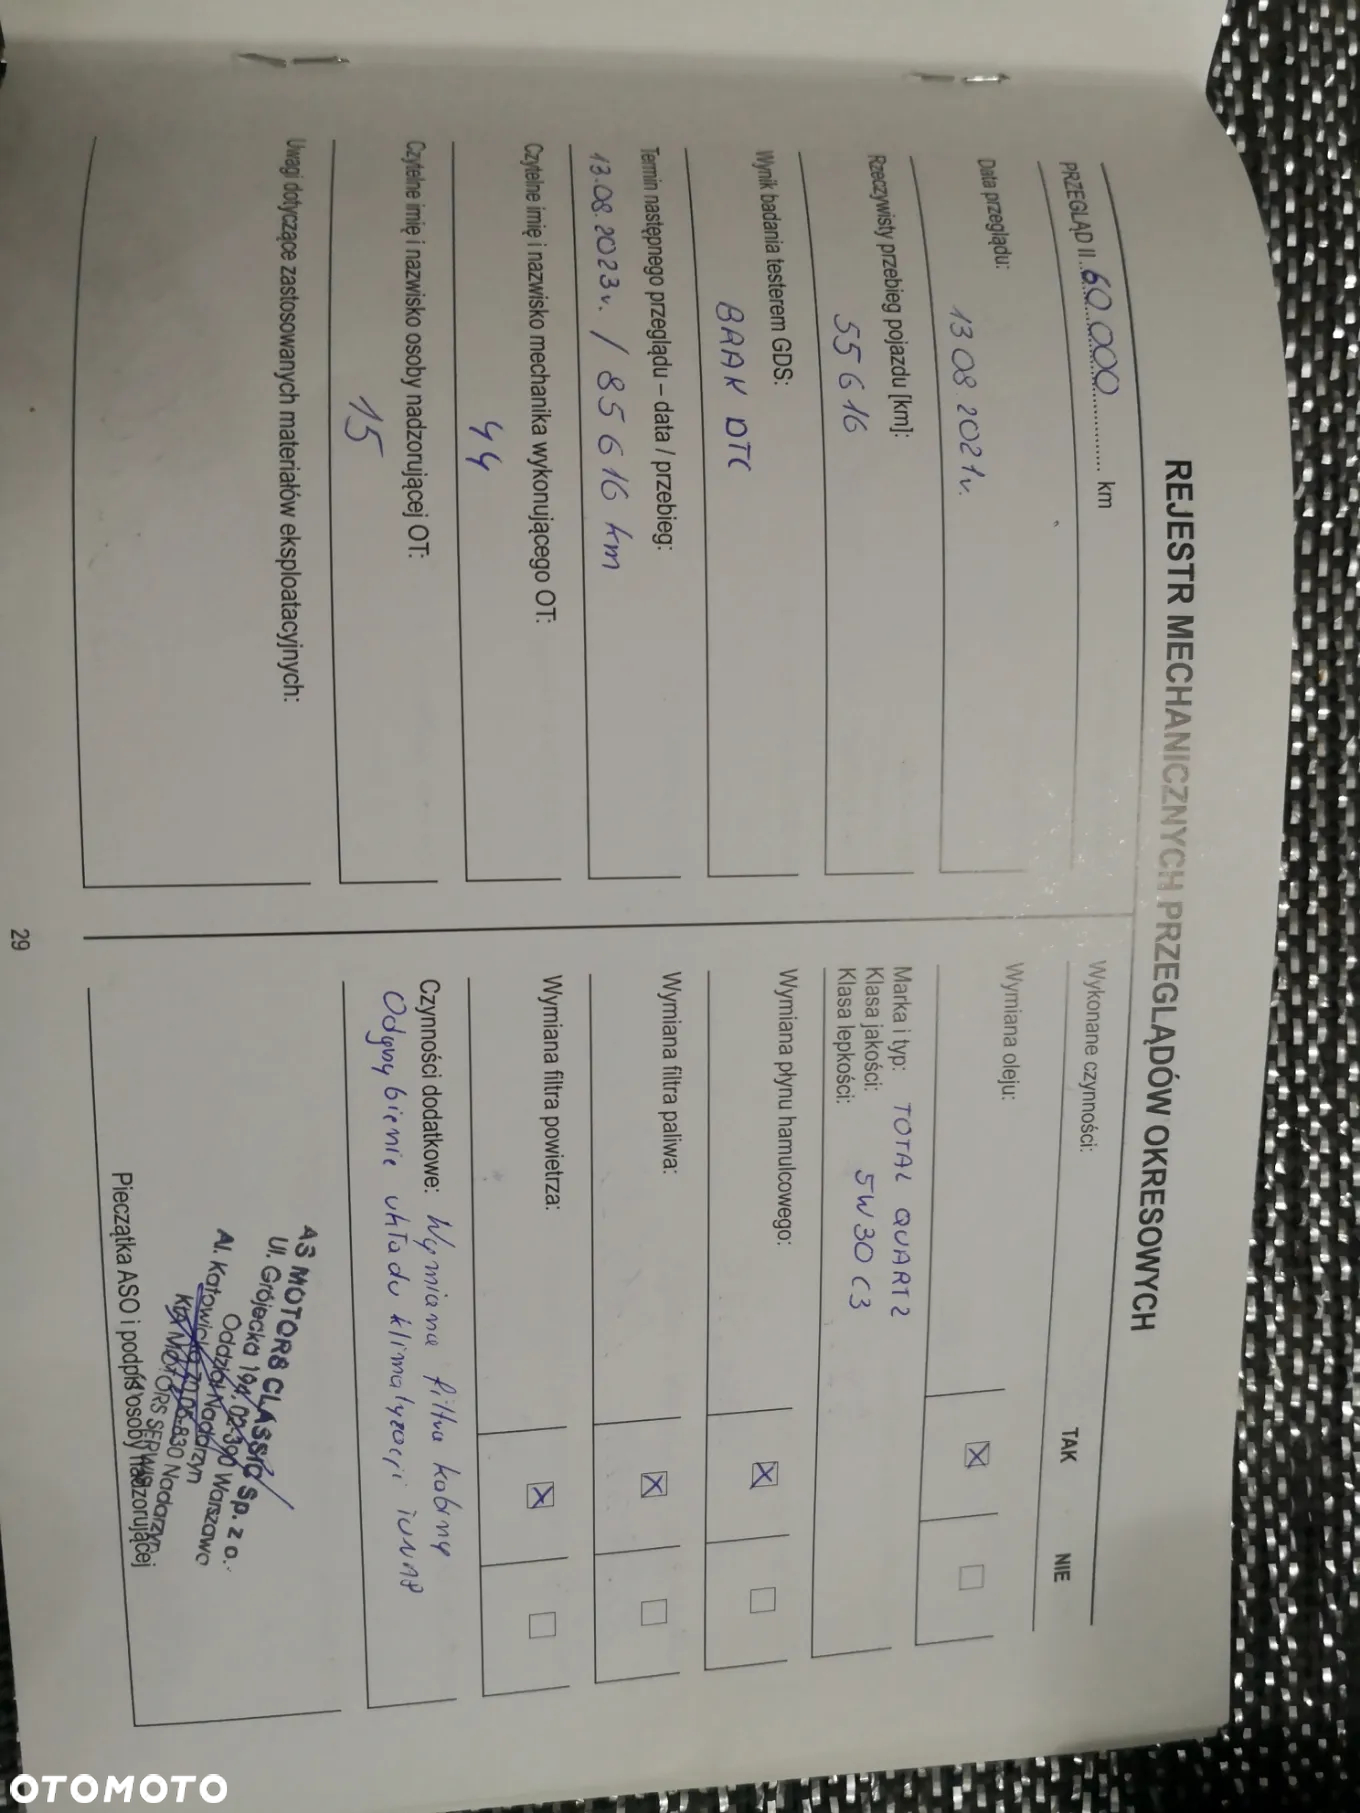 REJESTR MECHANICZNYCH PRZEGLĄDÓW OKRESOWYCH
PRZEGLĄD II 60 000 km
Data przeglądu:
13 08 2021r.
Rzeczywisty przebieg pojazdu [km]:
55616
Wynik badania testerem GDS:
BRAK DTC
Termin następnego przeglądu – data / przebieg:
13.08.2023r. / 85616 km
Czytelne imię i nazwisko mechanika wykonującego OT:
44
Czytelne imię i nazwisko osoby nadzorującej OT:
15
Uwagi dotyczące zastosowanych materiałów eksploatacyjnych:
Wykonane czynności: TAK NIE
Wymiana oleju:
Marka i typ: TOTAL QUARTZ
Klasa jakości:
Klasa lepkości: 5W30 C3
Wymiana płynu hamulcowego:
Wymiana filtra paliwa:
Wymiana filtra powietrza:
Czynności dodatkowe: Wymiana filtra kabiny
Odgrzybienie układu klimatyzacji
AS MOTORS CLASSIC Sp. z o.
Ul. Grójecka 194, 02-390 Warszawa
Oddział Nadarzyn
Al. Katowicka 05-830 Nadarzyn
MOTORS SERWIS
Pieczątka ASO i podpis osoby nadzorującej
29
OTOMOTO